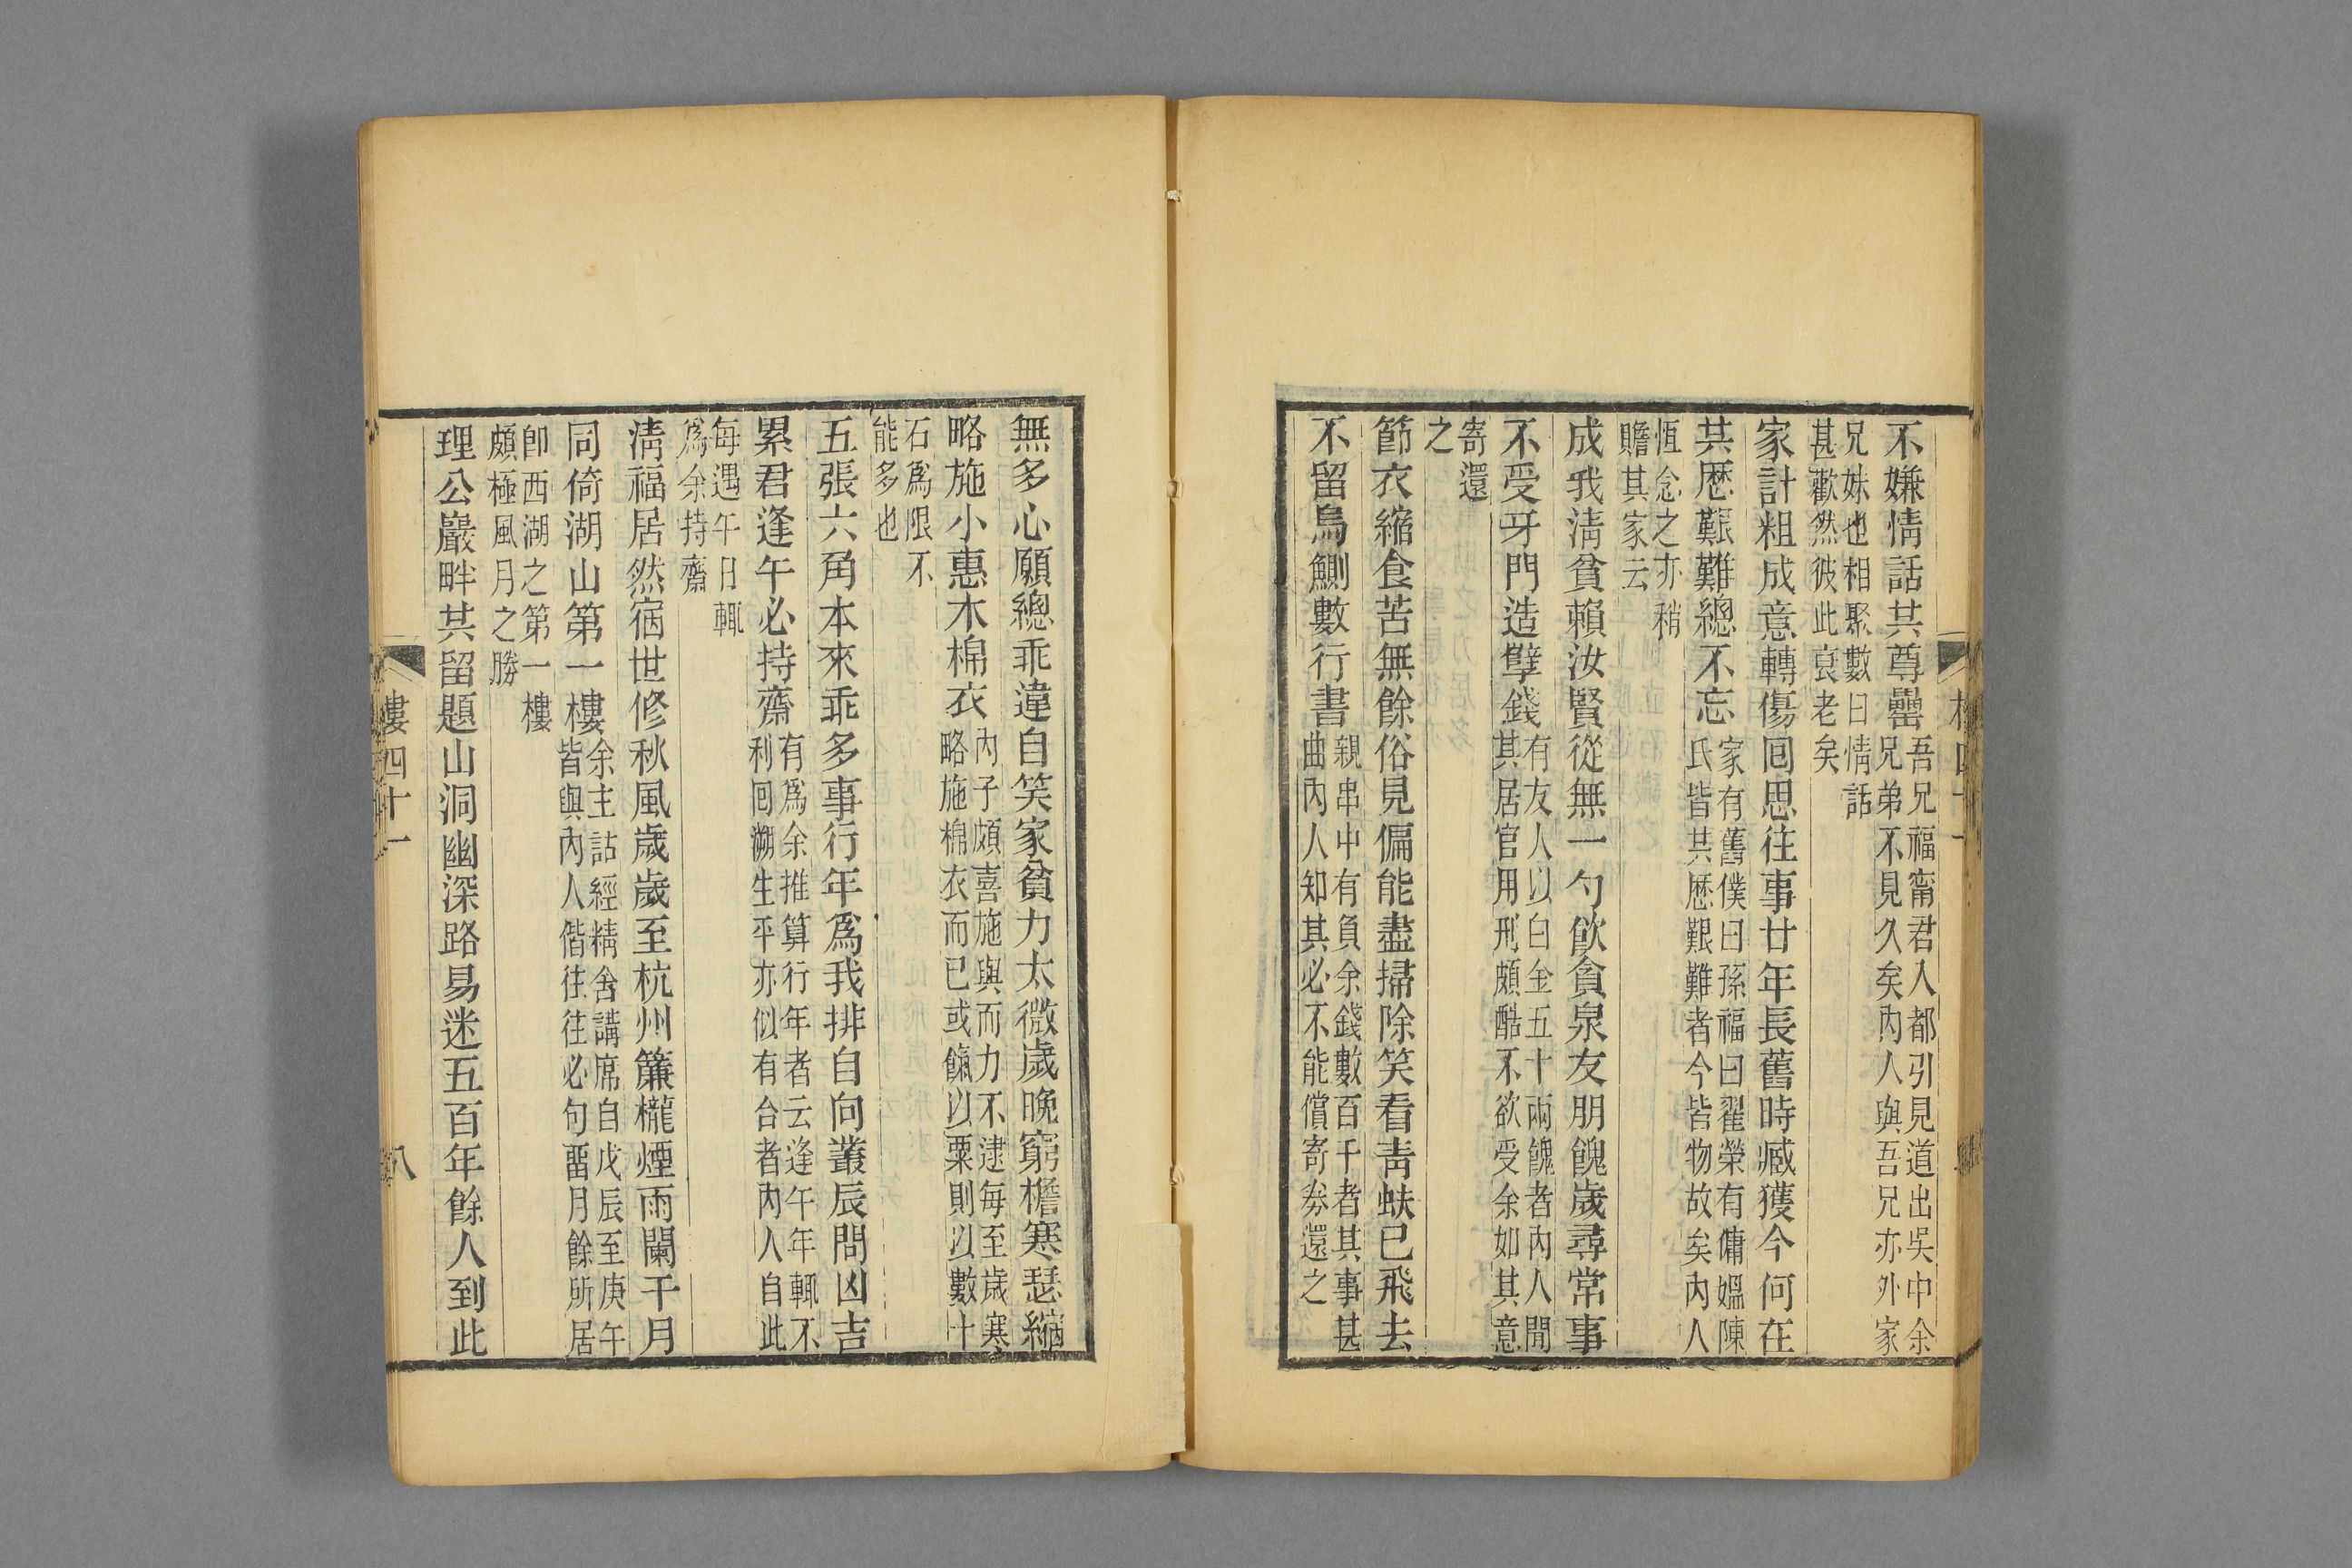 不嫌情話共尊罍吾兄福甯君入都引見道出吳中余
兄弟不見久矣內人與吾兄亦外家
兄妹也相聚數日情話
甚歡然彼此衰老矣
家計粗成意轉傷囘思往事廿年長舊時臧獲今何在
共歷艱難總不忘家有舊僕曰孫福曰翟榮有傭媼陳
氏皆共歷艱難者今皆物故矣內人
恆念之亦稍
贍其家云
成我淸貧賴汝賢從無一勺飲貪泉友朋餽歲尋常事
不受牙門造孽錢有友人以白金五十兩餽者內人聞
其居官用刑頗酷不欲受余如其意
寄還
之
節衣縮食苦無餘俗見偏能盡掃除笑看靑蚨已飛去
不留烏鰂數行書親串中有負余錢數百千者其事甚
曲內人知其必不能償寄券還之
無多心願總乖違自笑家貧力太微歲晚窮檐寒瑟縮
略施小惠木棉衣內子頗喜施與而力不逮每至歲寒
略施棉衣而已或餼以粟則以數十
石爲限不
能多也
五張六角本來乖多事行年爲我排自向叢辰問凶吉
累君逢午必持齋有爲余推算行年者云逢午年輒不
利囘溯生平亦似有合者內人自此
每遇午日輒
爲余持齋
淸福居然宿世修秋風歲歲至杭州簾櫳煙雨闌干月
同倚湖山第一樓余主詁經精舍講席自戊辰至庚午
皆與內人偕往往必句畱月餘所居
卽西湖之第一樓
頗極風月之勝
理公巖畔共留題山洞幽深路易迷五百年餘人到此
樓四十一
八